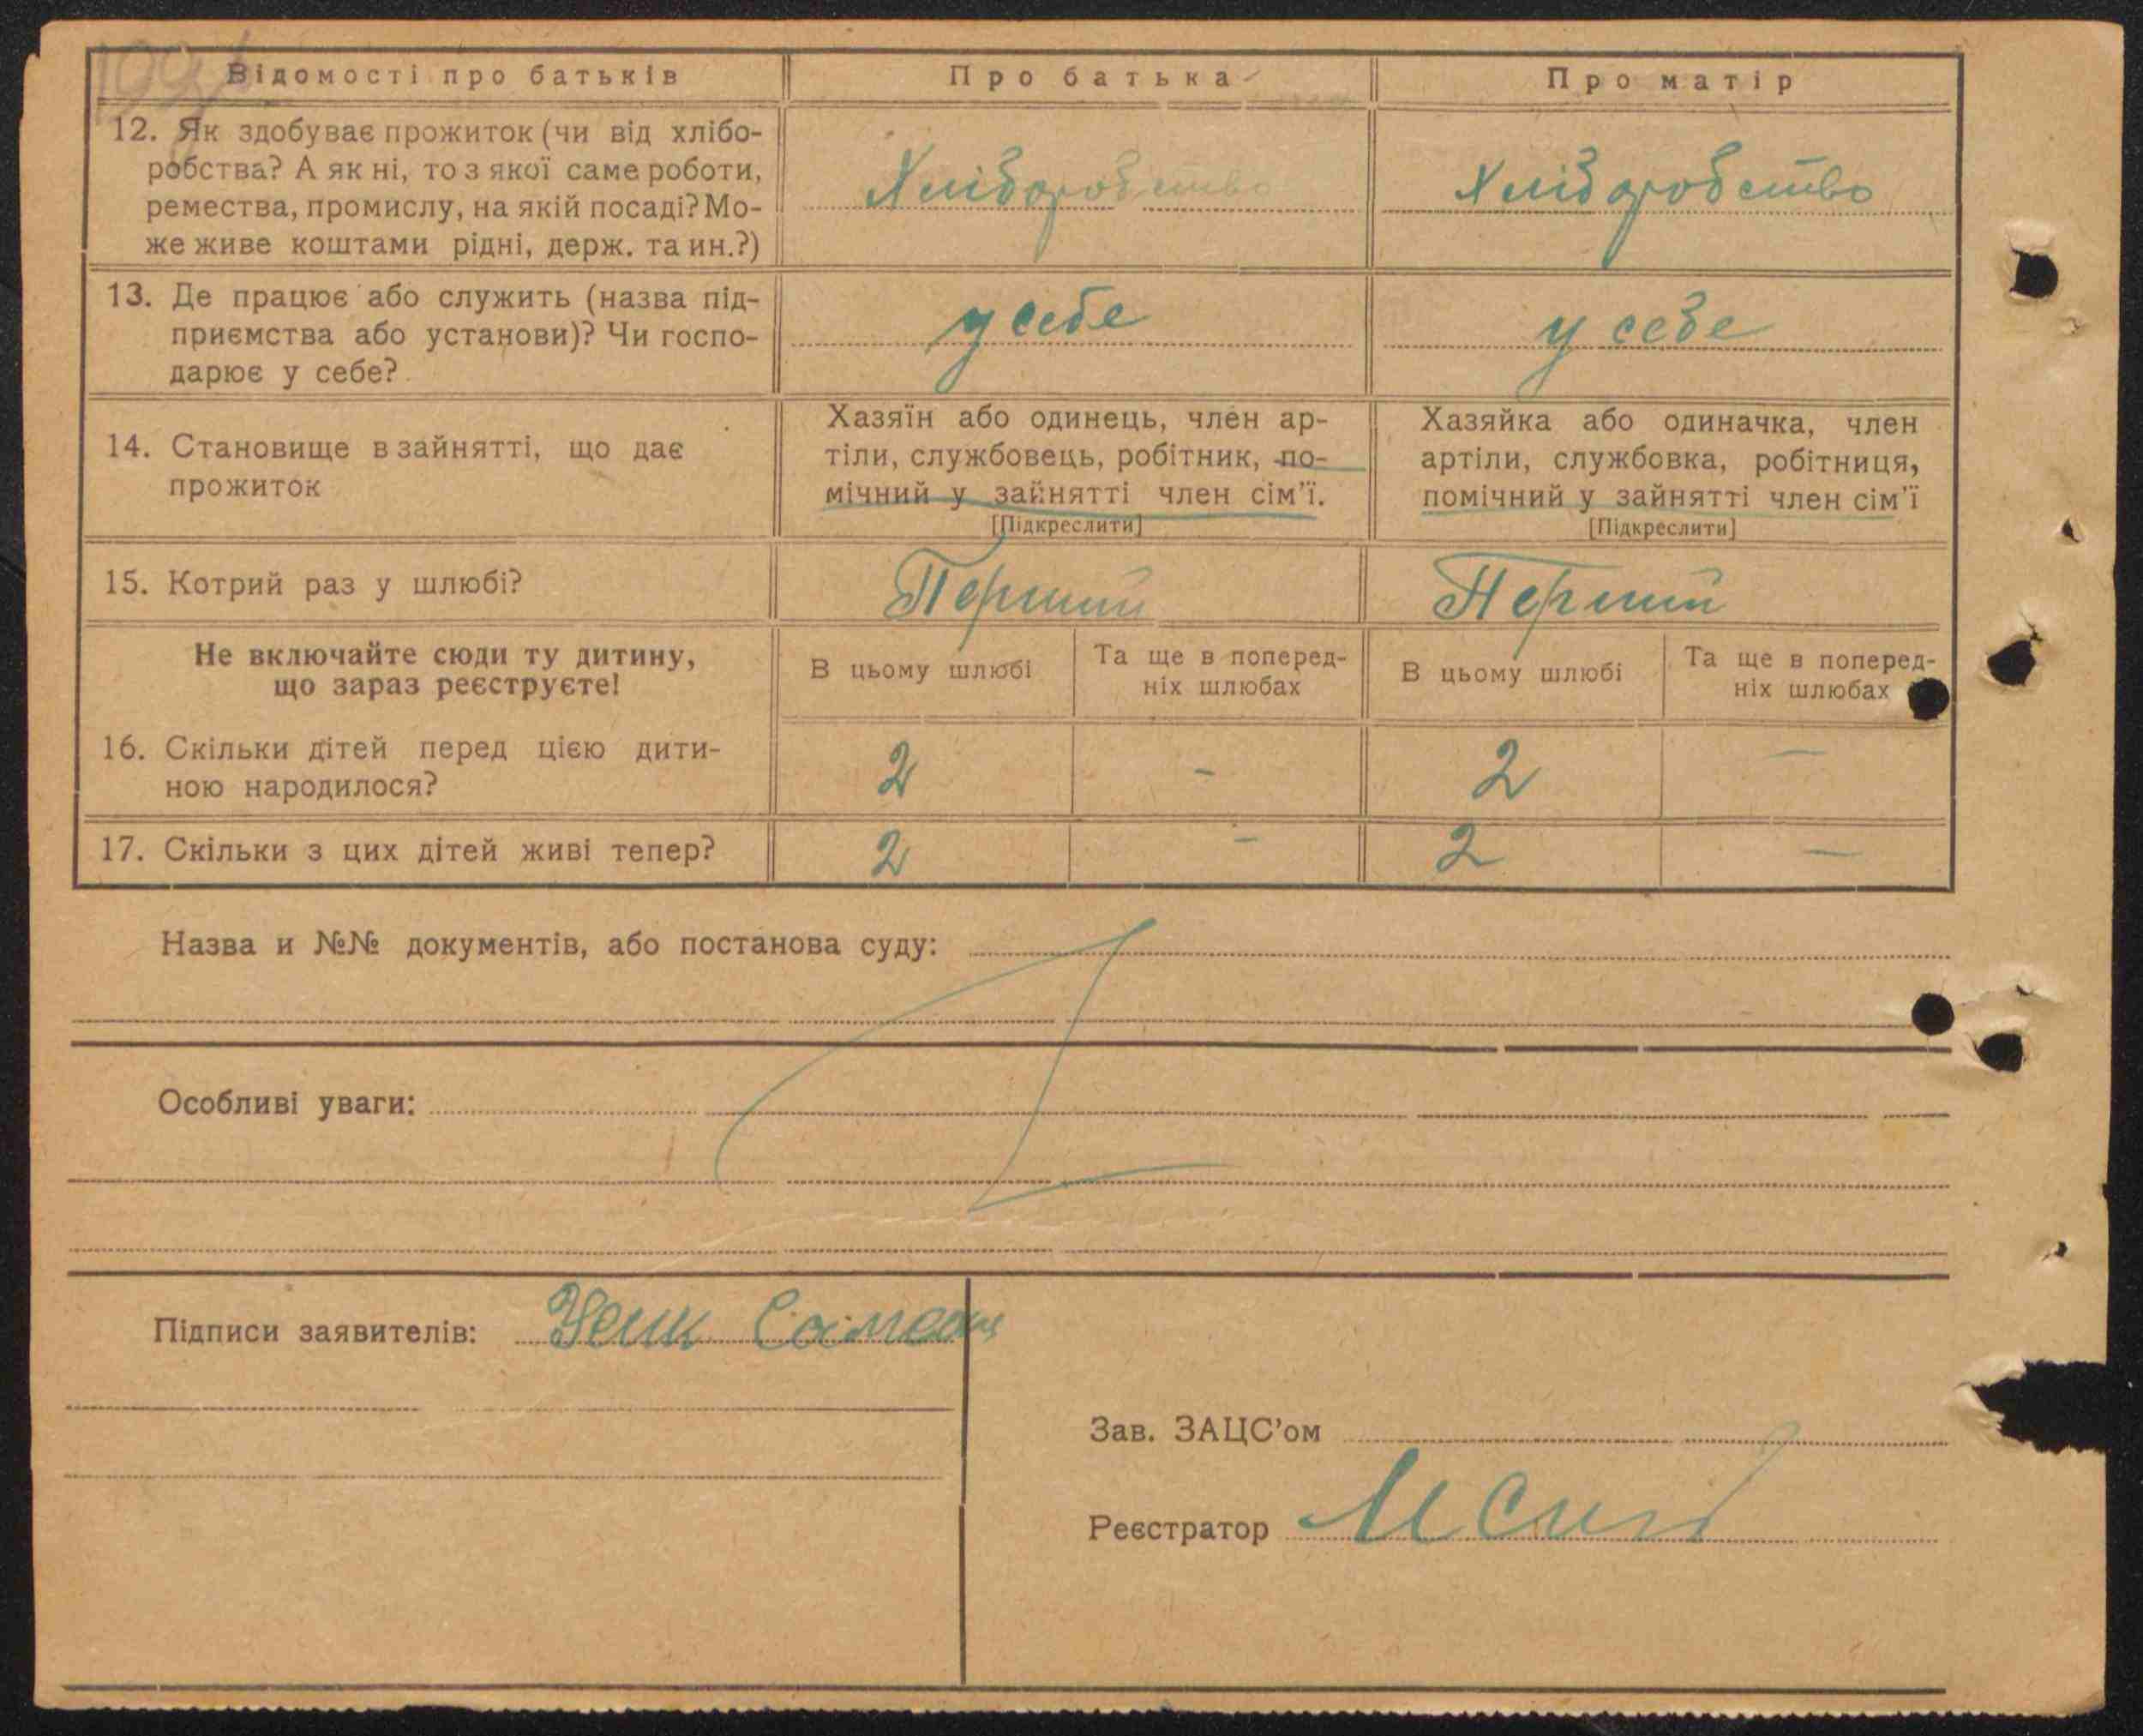 Відомості про батьків Про батька Про матір
12. Як здобуває прожиток (чи від хлібо-
робства? А як ні, то з якої саме роботи,
ремества, промислу, на якій посаді? Мо-
же живе коштами рідні, держ. та ин.?)
Хліборобство Хліборобство
13. Де працює або служить (назва під-
приємства або установи)? Чи госпо-
дарює у себе?
у себе у себе
14. Становище в зайнятті, що дає
прожиток
Хазяїн або одинець, член ар-
тіли, службовець, робітник, по-
мічний у зайнятті член сім'ї.
[Підкреслити]
Хазяйка або одиначка, член
артіли, службовка, робітниця,
помічний у зайнятті член сім'ї
[Підкреслити]
15. Котрий раз у шлюбі? Перший Перший
Не включайте сюди ту дитину,
що зараз реєструєте!
В цьому шлюбі
Та ще в поперед-
ніх шлюбах
В цьому шлюбі
Та ще в поперед-
ніх шлюбах
16. Скільки дітей перед цією дити-
ною народилося?
2 - 2 —
17. Скільки з цих дітей живі тепер? 2 - 2 —
Назва и №№ документів, або постанова суду:
Особливі уваги:
Підписи заявителів:
Зав. ЗАЦС'ом
Реєстратор